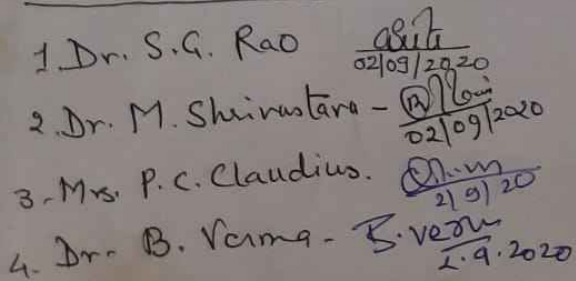 1. Dr. S.G. Rao 02/09/2020
2. Dr. M. Shrivastava - 02/09/2020
3 - Mrs. P. C. Claudius. 2/9/20
4. Dr. B. Verma - B. Verm 2.9.2020